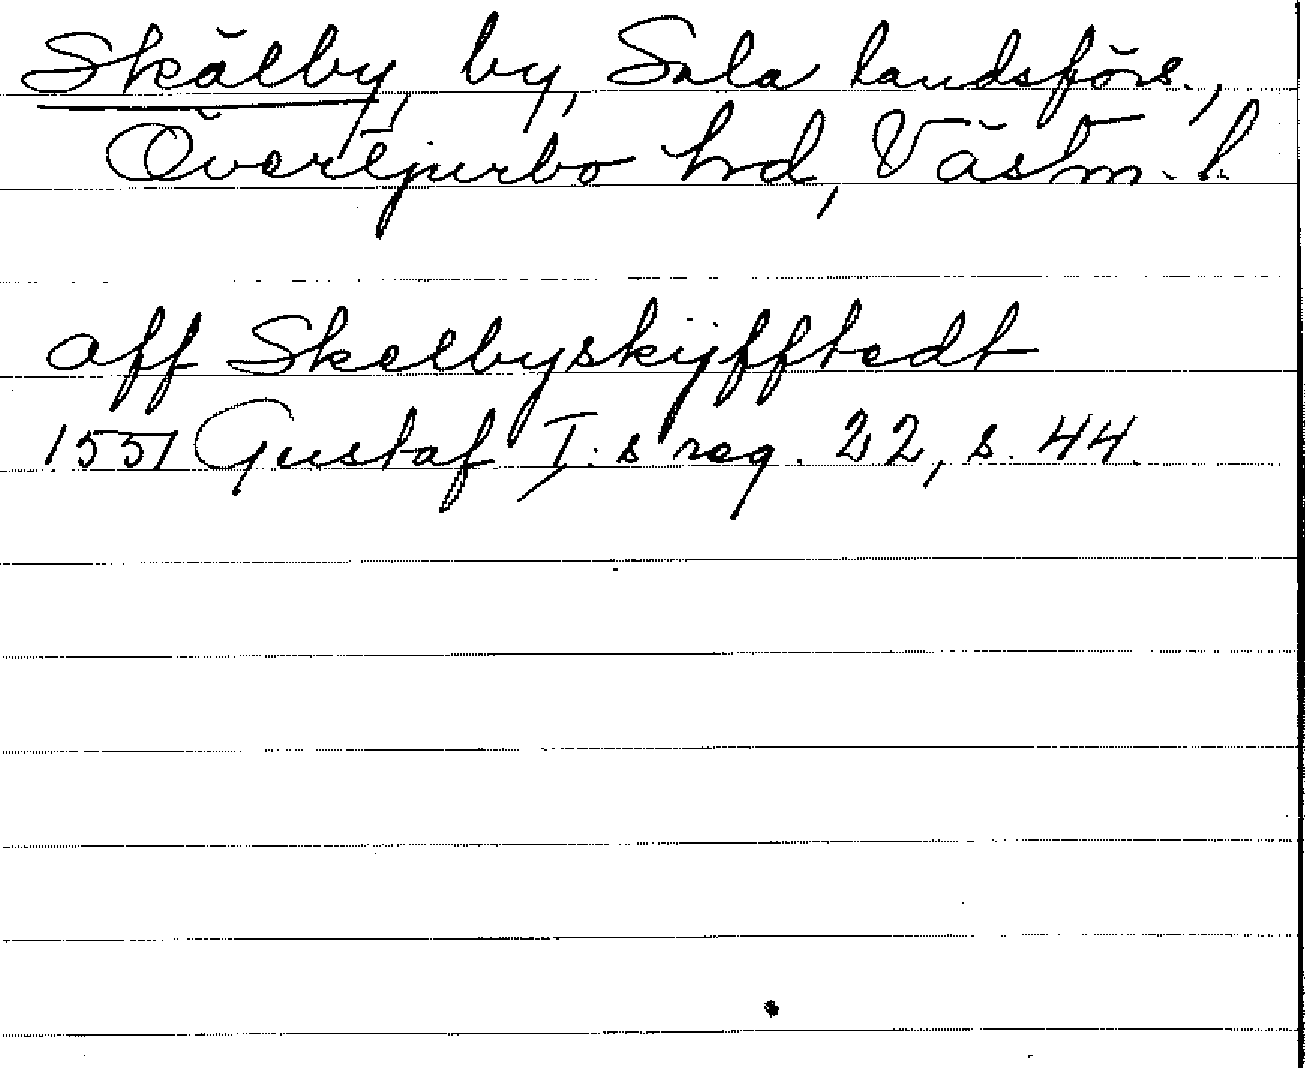 Skälby, by, Sala landsförs.,
Övertjurbo hd, Västm. l.
aff Skelbyskijfftedt
1551 Gustaf I:s reg. 22, s. 44.